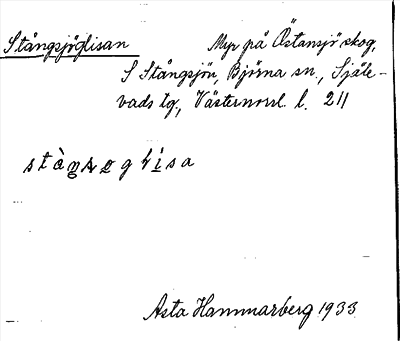 Stångsjöglisan Myr på Östansjö skog,
S Stångsjön, Björna sn., Själe-
vads tg., Västernorrl. l. 211
Asta Hammarberg 1933